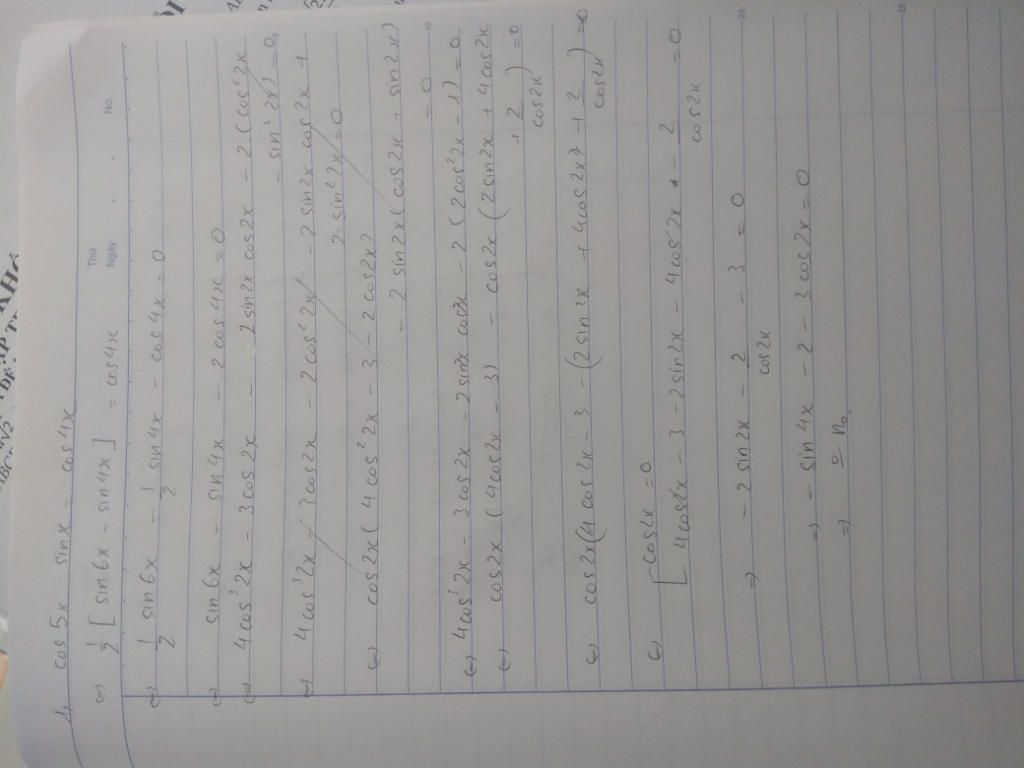 Thứ
Ngày
No.
1, cos5x . sinx = cos4x
⇔ 1/2 [sin6x - sin4x] = cos4x
⇔ 1/2 sin6x - 1/2 sin4x - cos4x = 0
⇔ sin6x - sin4x - 2cos4x = 0
⇔ 4cos³2x - 3cos2x - 2sin2x cos2x - 2(cos²2x
- sin²2x) = 0
⇔ 4cos³2x - 3cos2x - 2cos²2x - 2sin2x cos2x +
2sin²2x = 0
⇔ cos2x(4cos²2x - 3 - 2cos2x)
- 2sin2x(cos2x + sin2x)
= 0
⇔ 4cos³2x - 3cos2x - 2sin2x cos2x - 2(2cos²2x - 1) = 0
⇔ cos2x(4cos2x - 3) - cos2x(2sin2x + 4cos2x
+ 2/cos2x) = 0
⇔ cos2x(4cos2x - 3 - (2sin2x + 4cos2x + 2/cos2x) = 0
⇔ [ cos2x = 0
4cos2x - 3 - 2sin2x - 4cos2x - 2/cos2x = 0
⇒ -2sin2x - 2/cos2x - 3 = 0
⇒ - sin4x - 2 - 3cos2x = 0
10
20
25